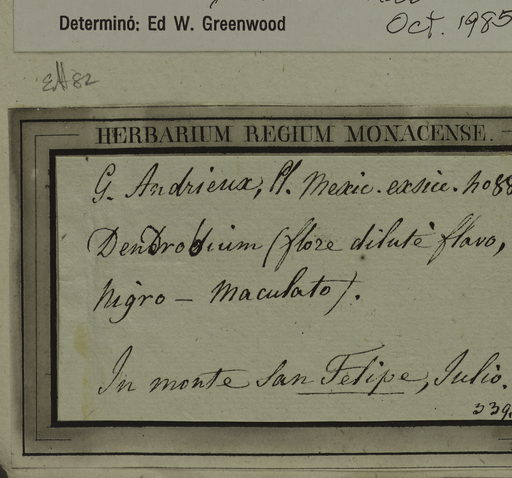 Determinó: Ed W. Greenwood
Oct. 1985
EH 82
HERBARIUM REGIUM MONACENSE.
G. Andrieux, Pl. Mexic. exsicc. no 88
Dendrobium (flore dilutè flavo,
nigro - maculato).
In monte San Felipe, Julio.
339